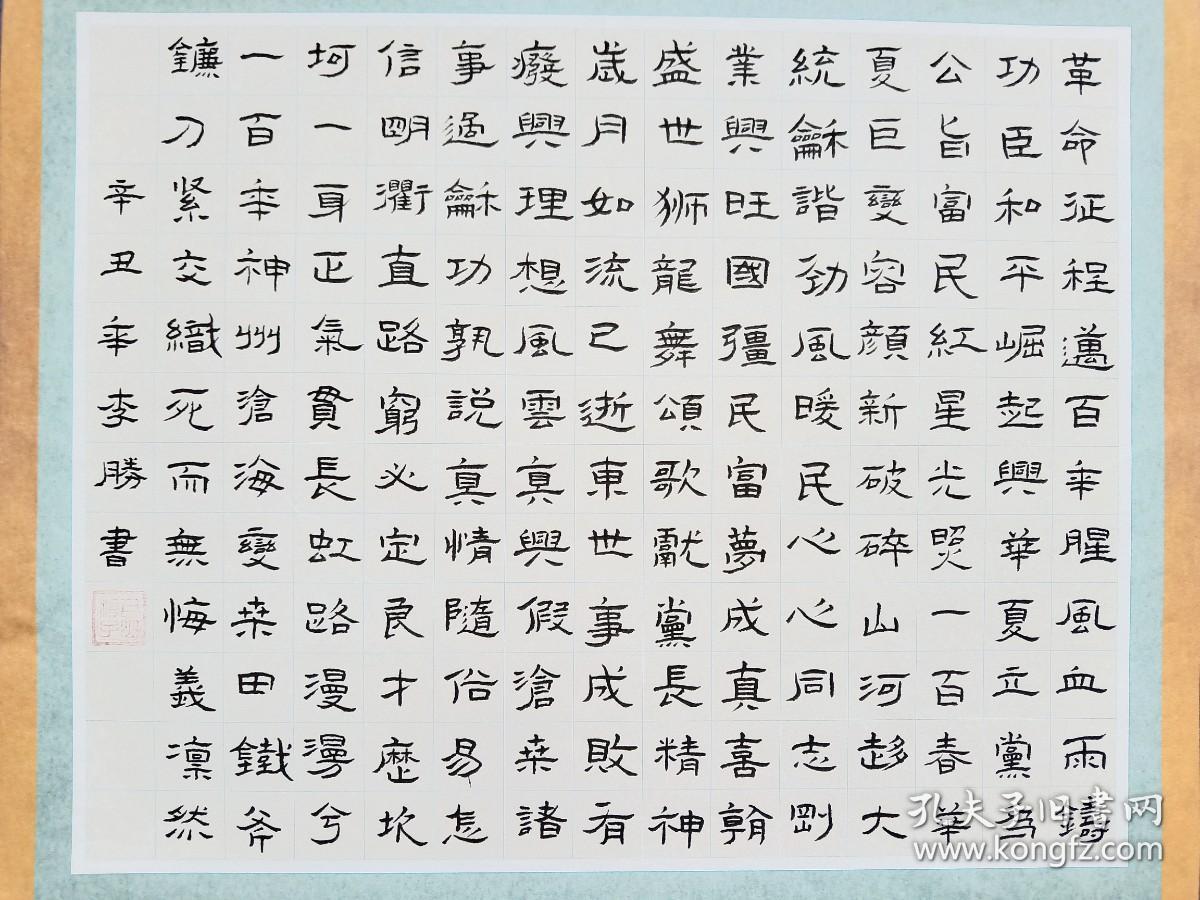 革命征程邁百年腥風血雨鑄
功臣和平崛起興華夏立黨為
公旨富民紅星光照一百春華
夏巨變容顏新破碎山河趍大
統龢諧勁風暖民心心同志剛
業興旺國彊民富夢成真喜朝
盛世狮龍舞頌歌獻黨長精神
歲月如流已逝東世事成敗有
癈興理想風雲真與假滄桑諸
事過龢功孰説真情隨俗易怎
信明衢直路窮必定良才歷坎
坷一身正氣貫長虹路漫漫兮
一百年神州滄海變桑田鐵斧
鐮刀緊交織死而無悔義凜然
辛丑年李勝書
孔夫子旧書网
www.kongfz.com